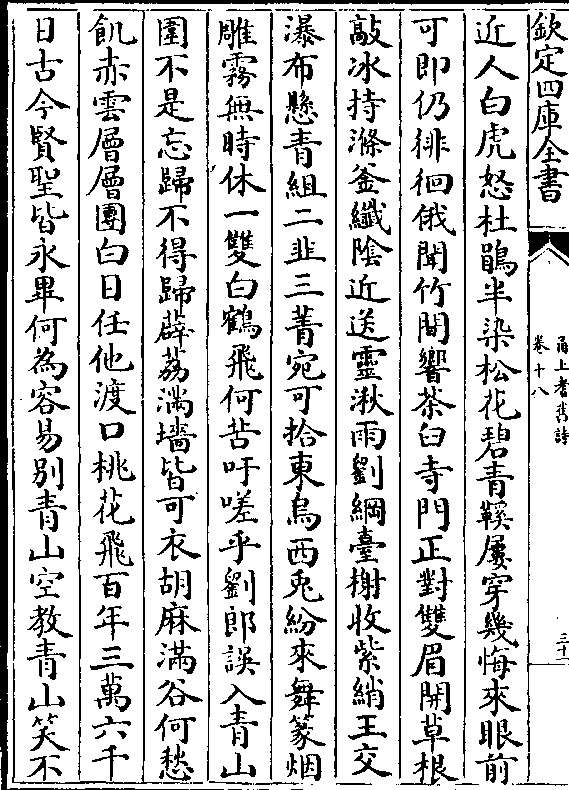 欽定四庫全書
甬上耆舊詩
卷十八
三十二
近人白虎怒杜鵑半染松花碧青鞵屢穿幾悔來眼前
可即仍徘徊俄聞竹間響茶臼寺門正對雙眉開草根
敲冰持滌釜纖陰近送靈湫雨劉綱臺榭收紫綃王交
瀑布懸青組二韭三菁宛可拾東烏西兎紛來舞篆烟
雕霧無時休一雙白鶴飛何苦吁嗟乎劉郎誤入青山
圍不是忘歸不得歸薜荔滿墻皆可衣胡麻滿谷何愁
飢赤雲層層團白日任他渡口桃花飛百年三萬六千
日古今賢聖皆永畢何為容易別青山空教青山笑不